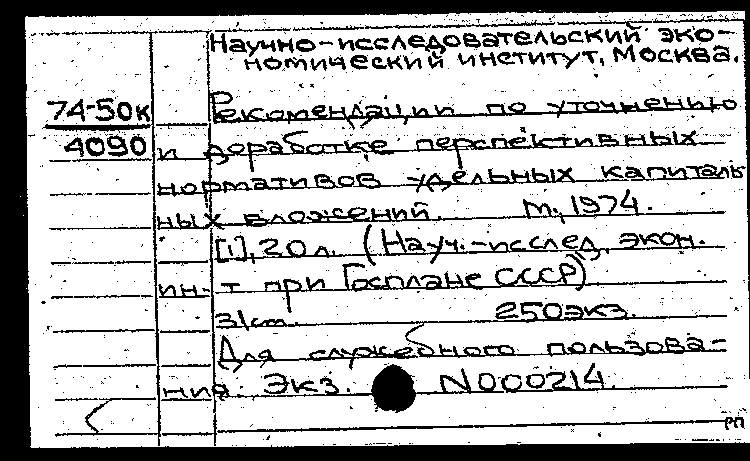 Научно-исследовательский эко-
номический институт, Москва.
74-50к
4090
Рекомендации по уточнению
и доработке перспективных
нормативов удельных капиталь
ных вложений. М., 1974.
[1], 20 л. (Науч.-исслед. экон.
ин-т при Госплане СССР)
3/ст. 250экз.
Для служебного пользова-
ния. Экз. N000214.
РП